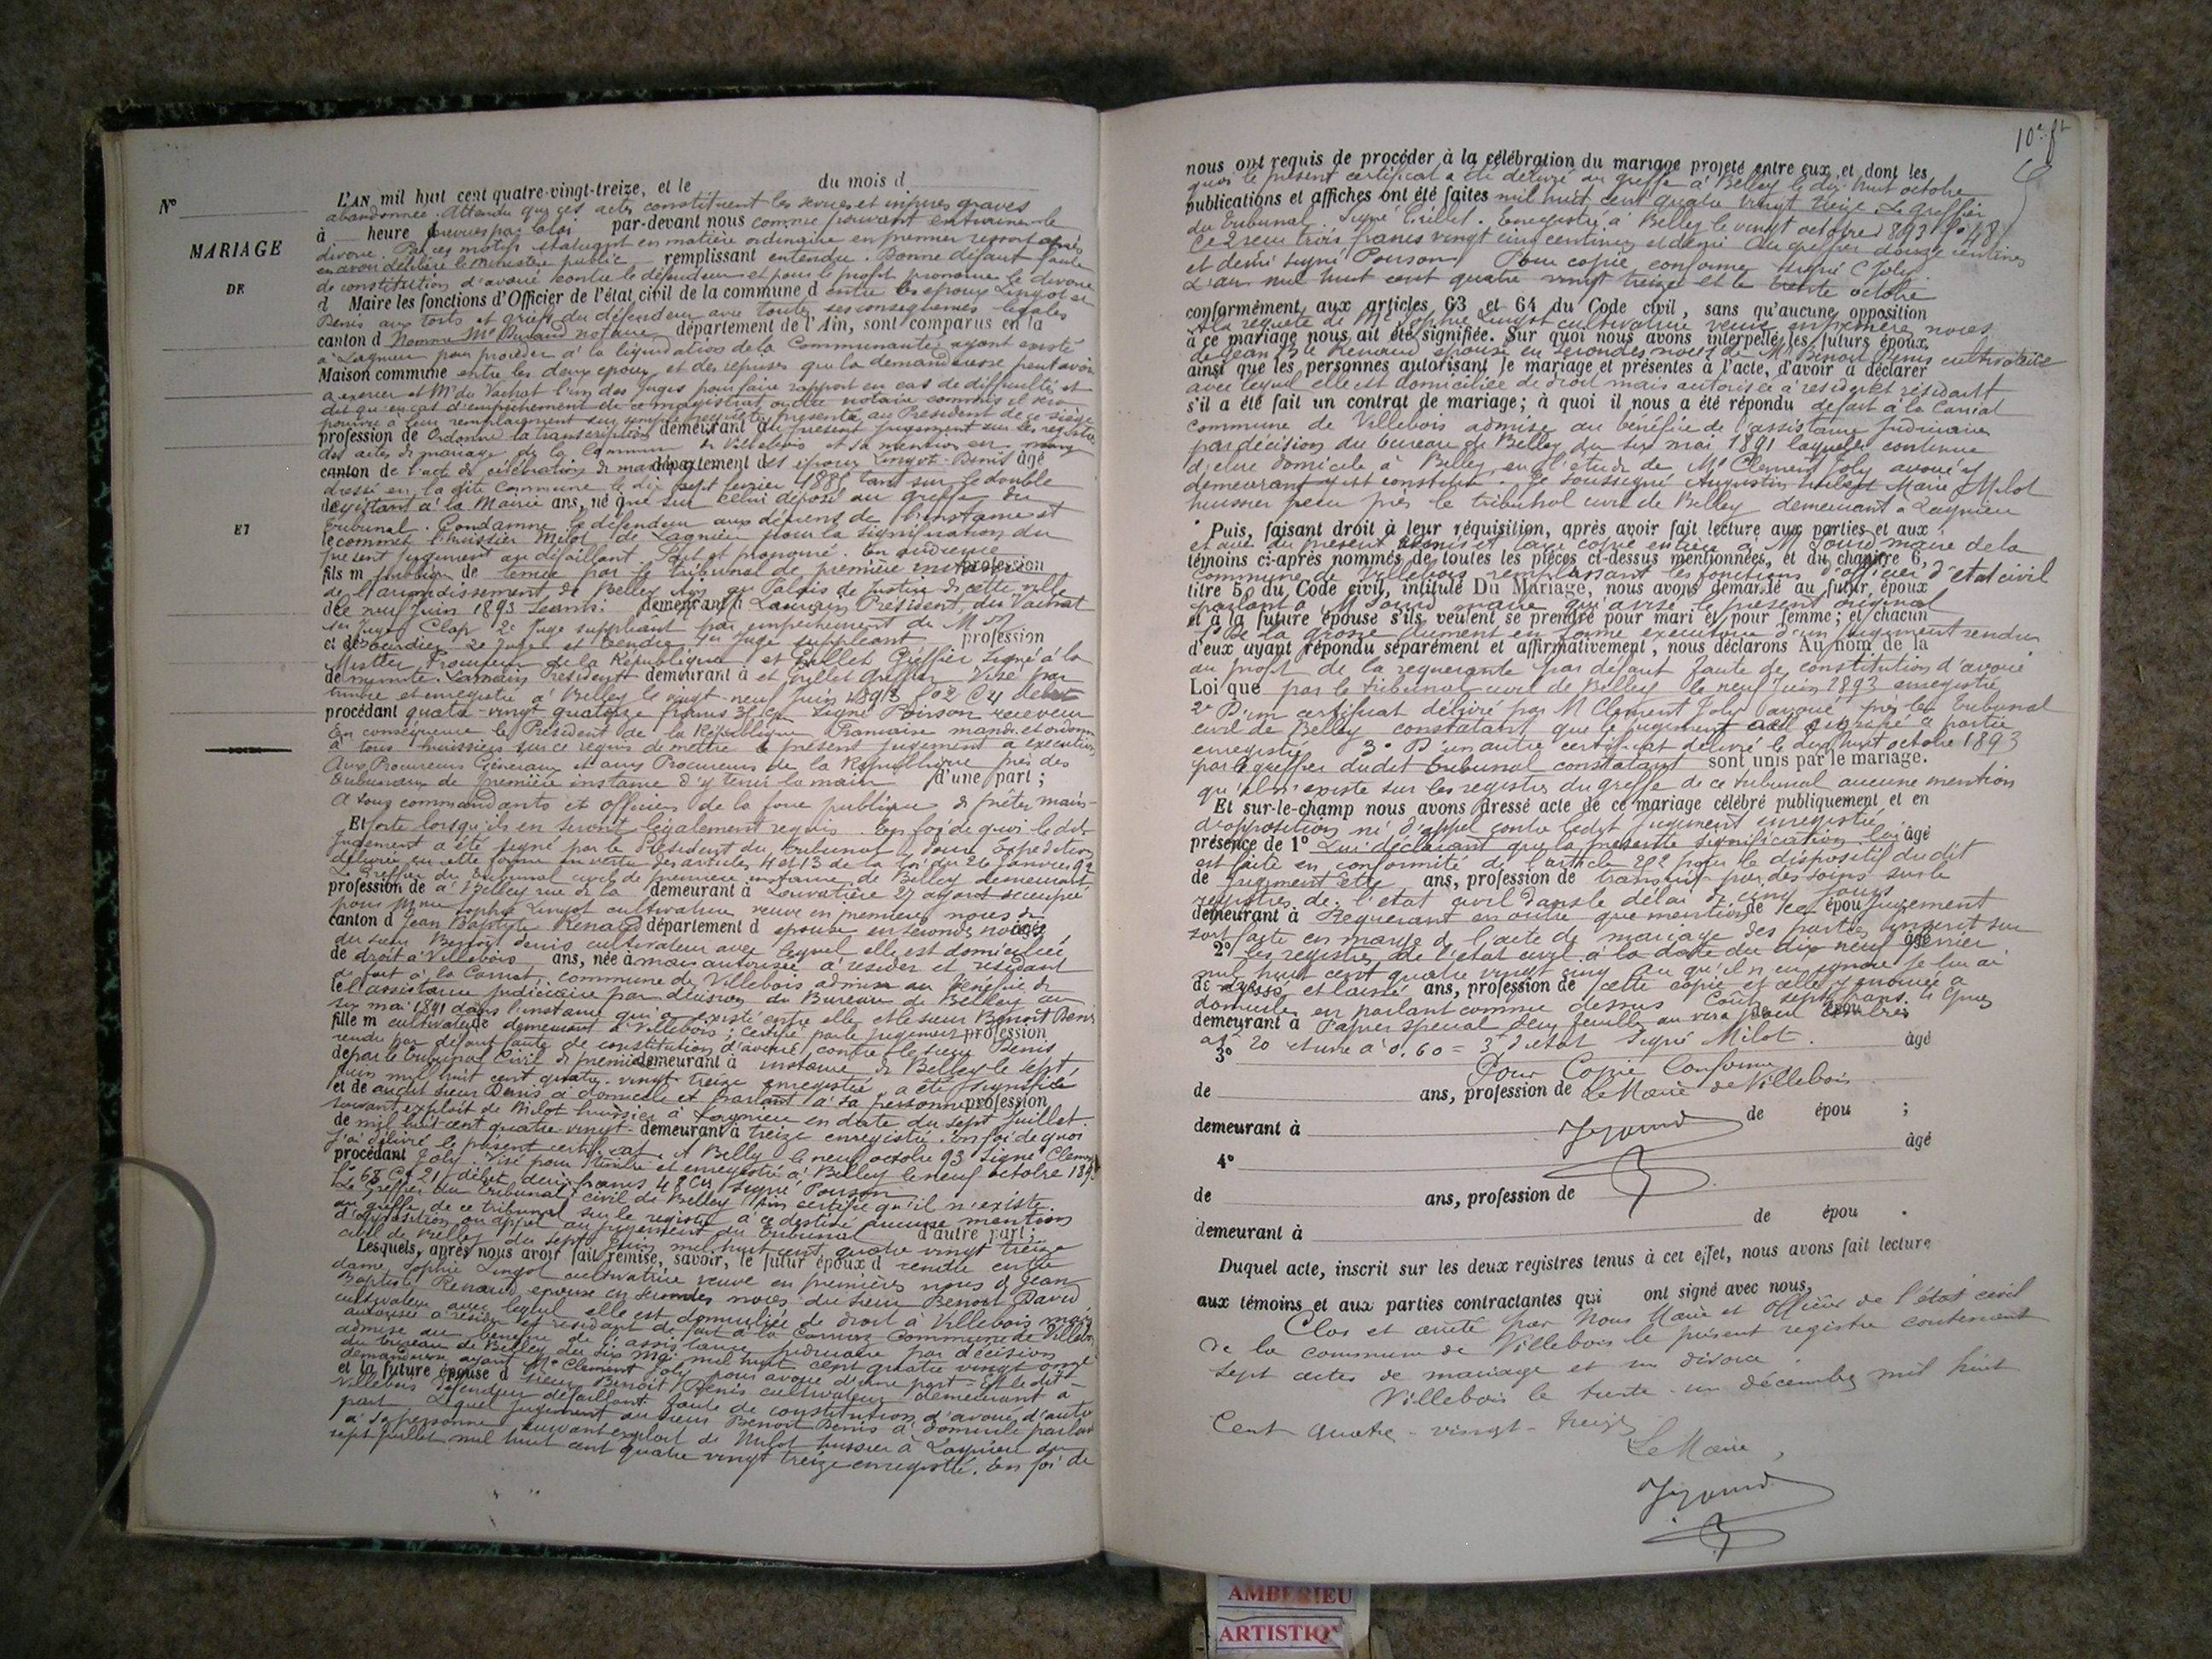 N°
MARIAGE
DE
ET
L'AN mil huit cent quatre-vingt-treize, et le du mois d
abandonnée. Attendu que ces actes constituent les sévices et injures graves
à heure prévues par la loi par-devant nous comme pouvant entrainer le
divorce. Par ces motifs statuant en matière ordinaire en premier ressort après
en avoir délibéré le ministère public remplissant entendu. Donne défaut faute
de constitution d'avoué contre le défendeur et pour le profit prononce le divorce
d Maire les fonctions d'Officier de l'état civil de la commune d entre les époux Lingot et
Denis aux torts et griefs du défendeur avec toutes ses conséquences légales
canton d Nomme Me Durand notaire département de l'Ain, sont comparus en la
à Lagnieu pour procéder à la liquidation de la Communauté ayant existé
Maison commune entre les deux époux et des reprises que la demanderesse peut avoir
à exercer et Mr du Vachat l'un des Juges pour faire rapport en cas de difficulté et
dit qu'en cas d'empêchement de ce magistrat ou du notaire commis il sera
pourvu à leur remplacement sur simple requête présentée au Président de ce siège
profession de Ordonne la transcription demeurant du présent jugement sur les registres
des actes de mariage de la Commune de Villebois et sa mention en marge
canton de l'acte de célébration de mariage département des époux Lingot-Denis âgé
dressé en la dite Commune le dix sept février 1885 tant sur le double
de existant à la Mairie ans, né que sur celui déposé au greffe du
tribunal. Condamne le défendeur aux dépens de l'instance et
le commet l'huissier Milot de Lagnieu pour la signification du
présent jugement au défaillant. Fait et prononcé. En audience
fils m publique de tenue par le tribunal de première instance profession
de l'arrondissement de Belley Ain au Palais de Justice de cette ville
de le neuf Juin 1893 Séants. demeurant à Lauvain Président, du Vachat
1er Juge, Clap 2e Juge suppléant par empêchement de M
et de 2e Juge et 1er Juge suppléant profession
Procureur de la République et Grillet Greffier Signé à la
de minute. Président demeurant à et Grillet Greffier Visé pour
timbre et enregistré à Belley le vingt-neuf Juin 1893 débet
procédant quatre-vingt quatorze francs Signé Poisson receveur
En conséquence le Président de la République Française mande et ordonne
à tous huissiers sur ce requis de mettre le présent Jugement à exécution
Aux Procureurs Généraux et aux Procureurs de la République près des
tribunaux de première instance d'y tenir la main d'une part ;
A tous commandants et officiers de la force publique de prêter main-
Et forte lorsqu'ils en seront légalement requis. En foi de quoi le dit
Jugement a été signé par le Président du tribunal. Pour expédition
délivrée en cette forme en vertu des articles 4 et 13 de la loi du 26 Janvier 92
Le Greffier du tribunal civil de première instance de Belley demeurant
profession de à Belley rue de la demeurant à
pour Mme Sophie Lingot cultivatrice veuve en premières noces de
canton d Jean Baptiste Renaud département d épouse en secondes noces âgée
du sieur Benoit Denis cultivateur avec lequel elle est domiciliée
de droit à Villebois ans, née à mais autorisée à résider et résidant
de fait à la Carriat commune de Villebois admise au bénéfice de
de l'assistance judiciaire par décision du Bureau de Belley du
six mai 1891 dans l'instance qui a existé entre elle et le sieur Benoit Denis
fille m cultivateur de demeurant à Villebois ; certifie que le Jugement profession
rendu par défaut faute de constitution d'avoué contre le sieur Denis
de par le tribunal Civil de première demeurant à instance de Belley le sept
Juin mil huit cent quatre-vingt-treize enregistré a été signifié
et de audit sieur Denis à domicile et parlant à sa personne profession
suivant exploit de Milot huissier à Lagnieu en date du sept Juillet
de mil huit cent quatre-vingt demeurant à treize enregistré. En foi de quoi
j'ai délivré le présent certificat. A Belley le neuf octobre 93 Signé Clément
procédant Joly. Visé pour timbre et enregistré à Belley le neuf octobre 1893
f° 68 Ce 21 débet deux francs 48 Ces Signé Poisson
Le greffier du tribunal civil de Belley Ain certifie qu'il n'existe
au greffe de ce tribunal sur le registre à ce destiné aucune mention
d'opposition ou appel au jugement du tribunal d'autre part ;
civil de Belley du sept Juin mil huit cent quatre vingt treize
Lesquels, après nous avoir fait remise, savoir, le futur époux d rendu entre
dame Sophie Lingot cultivatrice veuve en premières noces de Jean
Baptiste Renaud, épouse en secondes noces du sieur Benoit David
cultivateur avec lequel elle est domiciliée de droit à Villebois mais
autorisée à résider et résidant de fait à la Carriat Commune de Villebois
admise au bénéfice de l'assistance judiciaire par décision
du bureau de Belley du six mai mil huit cent quatre vingt onze
demanderesse ayant Me Clément Joly pour avoué d'une part - Et le dit
et la future épouse d sieur Benoit Denis cultivateur demeurant à
Villebois défendeur défaillant faute de constitution d'avoué d'autre
part. Lequel jugement au sieur Benoit Denis à domicile parlant
à sa personne suivant exploit de Milot huissier à Lagnieu du
sept Juillet mil huit cent quatre vingt treize enregistré. En foi de
10e ft
nous ont requis de procéder à la célébration du mariage projeté entre eux, et dont les
quoi le présent certificat a été délivré au greffe à Belley le dix-huit octobre
publications et affiches ont été faites mil huit cent quatre vingt treize. Le greffier
du tribunal. Signé Grillet. Enregistré à Belley le vingt octobre 1893 f° 48
Ce 2 reçu trois francs vingt cinq centimes et demi. Au greffier douze centimes
et demi signé Poisson. Pour copie conforme signé C Joly.
L'an mil huit cent quatre vingt treize et le trente octobre
conformément aux articles 63 et 64 du Code civil, sans qu'aucune opposition
A la requête de Me Sophie Lingot cultivatrice veuve en premières noces
à ce mariage nous ait été signifiée. Sur quoi nous avons interpellé les futurs époux,
de Jean Bte Renaud épouse en secondes noces de Mr Benoit Denis cultivateur
ainsi que les personnes autorisant le mariage et présentes à l'acte, d'avoir à déclarer
avec lequel elle est domiciliée de droit mais autorisée à résider et résidant
s'il a été fait un contrat de mariage ; à quoi il nous a été répondu de fait à la Carriat
commune de Villebois admise au bénéfice de l'assistance judiciaire
par décision du bureau de Belley du six mai 1891 laquelle continue
d'élire domicile à Belley en l'étude de Me Clément Joly avoué y
demeurant qui est constitué. Je soussigné Augustin Marie Milot
huissier près le tribunal civil de Belley demeurant à Lagnieu
Puis, faisant droit à leur réquisition, après avoir fait lecture aux parties et aux
et avec du présent laissé copie entière à M Jourd maire de la
témoins ci-après nommés de toutes les pièces ci-dessus mentionnées, et du chapitre 6,
Commune de Villebois remplissant les fonctions d'officier d'état civil
titre 5 du Code civil, intitulé DU MARIAGE, nous avons demandé au futur époux
parlant à M Jourd maire qui a visé le présent original
et à la future épouse s'ils veulent se prendre pour mari et pour femme ; et chacun
1° De la grosse dûment en forme exécutoire d'un jugement rendu
d'eux ayant répondu séparément et affirmativement, nous déclarons Au nom de la
au profit de la requérante par défaut faute de constitution d'avoué
Loi que par le tribunal civil de Belley le neuf Juin 1893 enregistré
2° D'un certificat délivré par M Clément Joly avoué près le tribunal
civil de Belley constatant que le jugement a été signifié à partie
enregistré 3° D'un autre certificat délivré le dix huit octobre 1893
par le greffier dudit tribunal constatant sont unis par le mariage.
qu'il n'existe sur les registres du greffe de ce tribunal aucune mention
Et sur-le-champ nous avons dressé acte de ce mariage célébré publiquement et en
d'opposition ni d'appel contre ledit Jugement enregistré
présence de 1° Lui déclarant que la présente signification lui âgé
est faite en conformité de l'article 252 pour le dispositif dudit
de jugement être ans, profession de transcrit par des soins sur le
registres de l'état civil dans le délai de cinq jours
demeurant à Requérant en outre que mention de épou jugement
soit faite en marge de l'acte de mariage des parties inscrit sur
2° les registres de l'état civil à la date du dix neuf février âgé
mil huit cent quatre vingt cinq Au qu'il n'en ignore je lui ai
de et laissé ans, profession de cette copie et celle y énoncée à
domicile en parlant comme dessus Coût sept francs
demeurant à Papier spécial deux feuilles au visa pour timbre épou
à 1f 20 et une à 0,60 = 3f, d'état Signé Milot.
3° âgé
Pour Copie Conforme
de ans, profession de Le Maire de Villebois
demeurant à de épou ;
4° âgé
de ans, profession de
demeurant à de épou .
Duquel acte, inscrit sur les deux registres tenus à cet effet, nous avons fait lecture
aux témoins et aux parties contractantes qui ont signé avec nous,
Clos et arrêté par Nous Maire et Officier de l'état civil
de la commune de Villebois le présent registre contenant
sept actes de mariage et un divorce.
Villebois le trente-un décembre mil huit
Cent quatre-vingt-treize
Le Maire,
AMBERIEU
ARTISTIQ